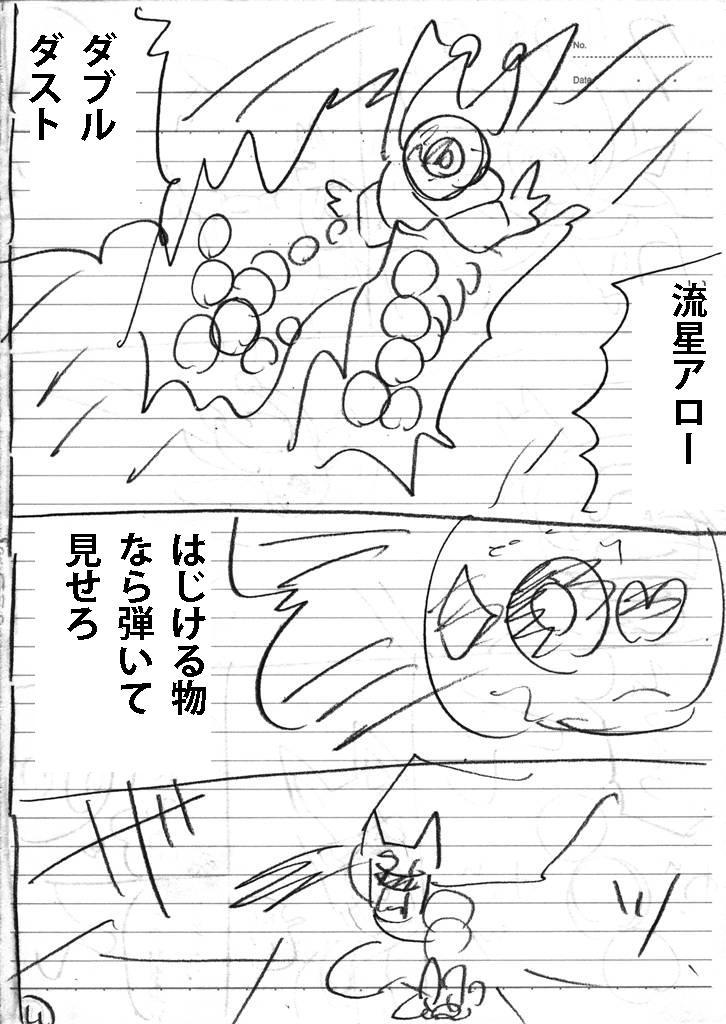 No.
Date
流星アロー
ダブル
ダスト
はじける物
なら弾いて
見せろ
4